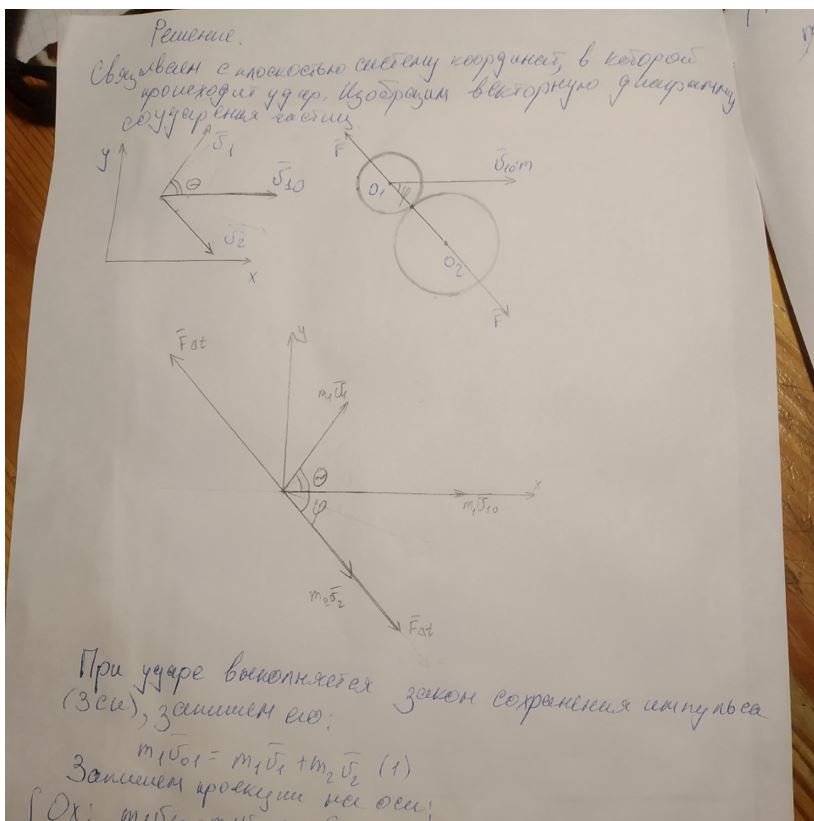 Решение.
Связываем с плоскостью систему координат, в которой
происходит удар. Изобразим векторную диаграмму
соударения частиц.
y
x
υ̅₁
Θ
υ̅₁₀
υ̅₂
F̅
O₁
φ
υ̅₁₀m
O₂
F̅
F̅Δt
y
m₁υ̅₁
Θ
x
φ
m₁υ̅₁₀
m₂υ̅₂
F̅Δt
При ударе выполняется закон сохранения импульса
(ЗСИ), запишем его:
m₁υ̅₀₁ = m₁υ̅₁ + m₂υ̅₂ (1)
Запишем проекции на оси:
Ox: